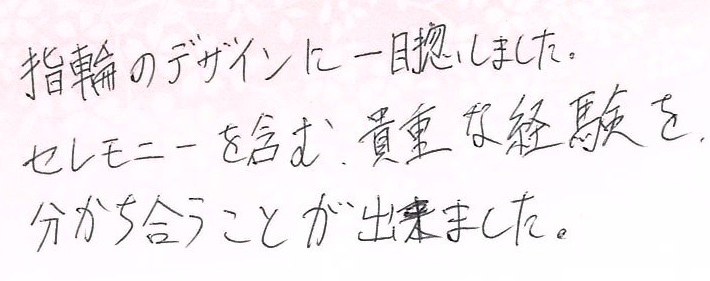 指輪のデザインに一目惚れしました。
セレモニーを含む、貴重な経験を、
分かち合うことが出来ました。